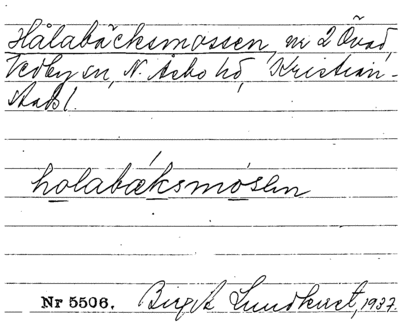 Hålabäcksmossen, nr 2 Övad,
Vedby sn, N. Åsbo hd, Kristian-
sta[d]s l.
holabáksmósen
Nr 5506. Birgit Lundkvist, 1937.